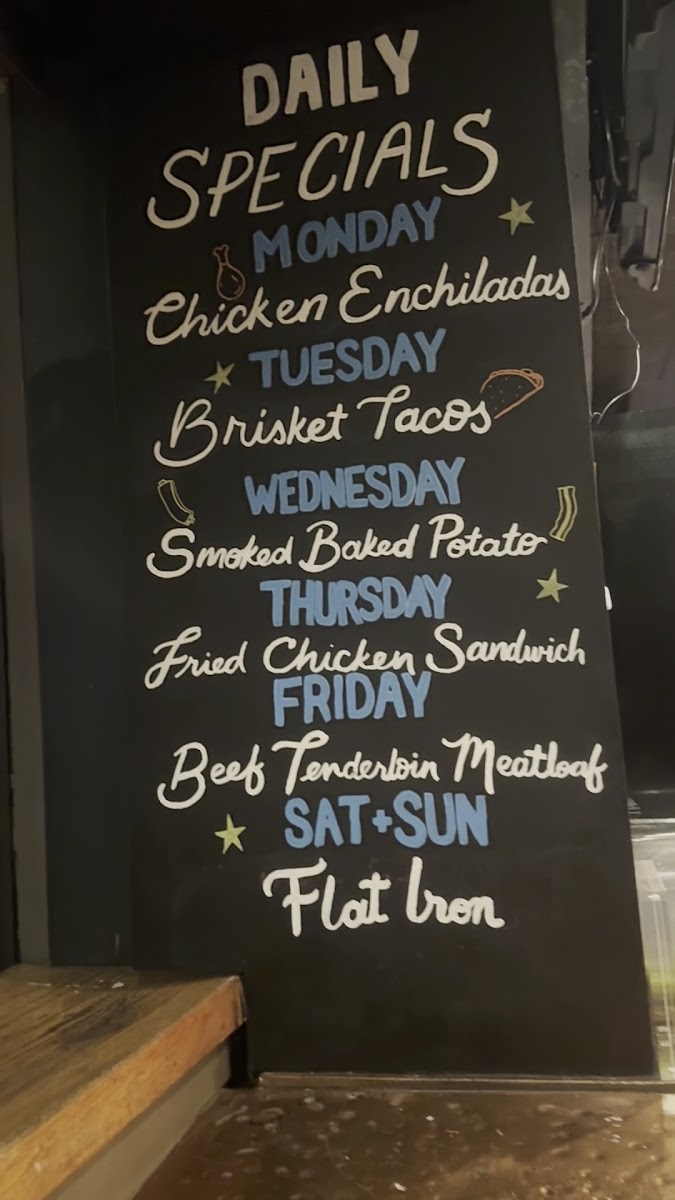 DAILY
SPECIALS
MONDAY
Chicken Enchiladas
TUESDAY
Brisket Tacos
WEDNESDAY
Smoked Baked Potato
THURSDAY
Fried Chicken Sandwich
FRIDAY
Beef Tenderloin Meatloaf
SAT+SUN
Flat Iron